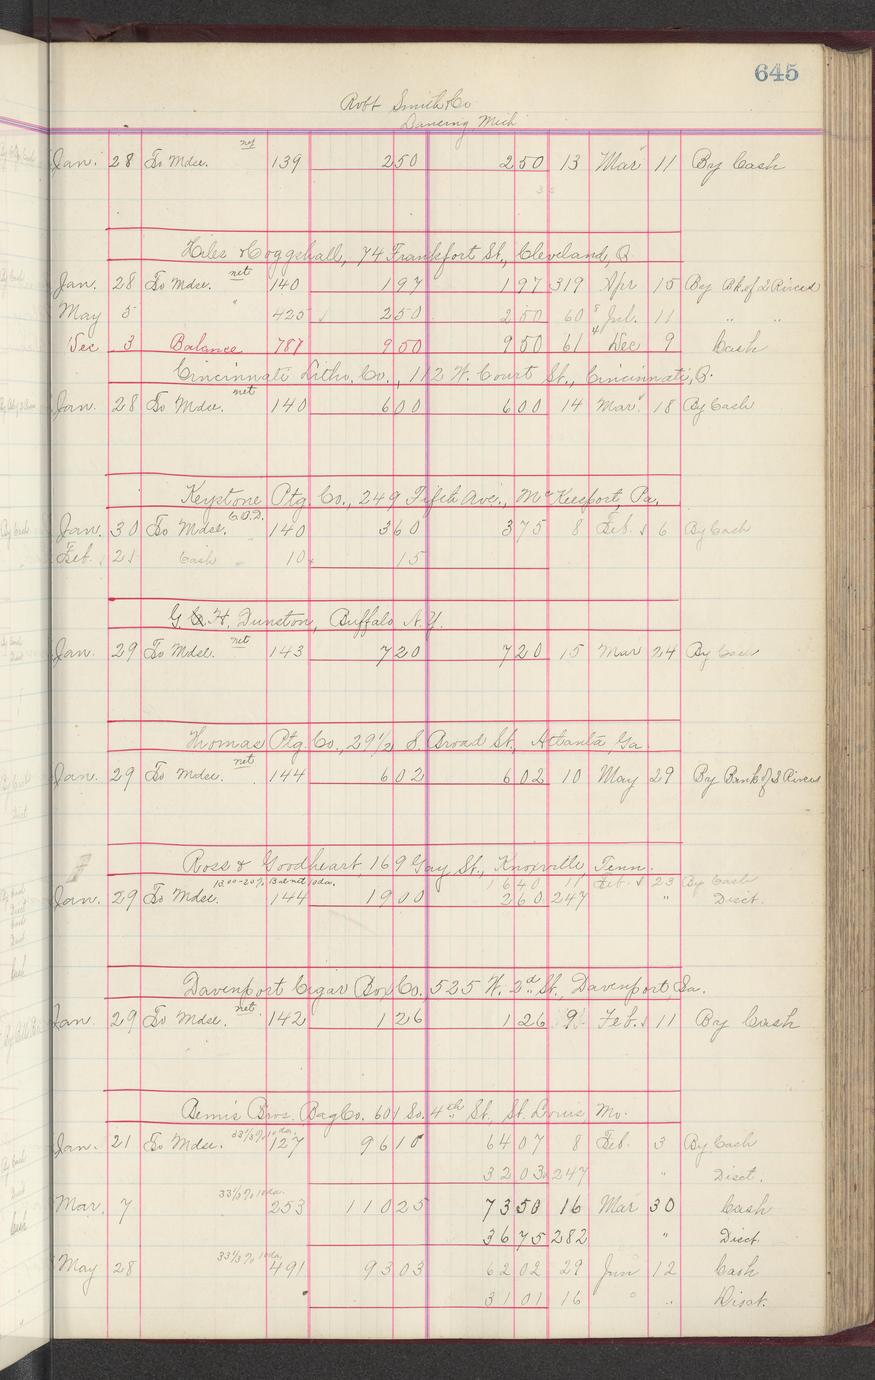 645
Robt Smith & Co
Lansing Mich
Jan. 28 To Mdse. net 139 2 50 2 50 13 Mar 11 By Cash
Hiles & Coggshall, 74 Frankfort St., Cleveland, O.
Jan. 28 To Mdse. net 140 1 97 1 97 319 Apr 15 By Bk. of 2 Rivers
May 5 " 425 2 50 2 50 60 Jul. 11 " "
Dec 3 Balance 787 9 50 9 50 61 Dec 9 Cash
Cincinnati Litho. Co., 112 W. Court St., Cincinnati, O.
Jan. 28 To Mdse. net 140 6 00 6 00 14 Mar. 18 By Cash
Keystone Ptg. Co., 249 Fifth Ave., McKeesport, Pa.
Jan. 30 To Mdse. C.O.D. 140 3 60 3 75 8 Feb. 6 By Cash
Feb. 21 Cash 10 15
G. H. Dunston, Buffalo N.Y.
Jan. 29 To Mdse. net 143 7 20 7 20 15 Mar 24 By Cash
Thomas Ptg. Co., 29 1/2 S. Broad St., Atlanta, Ga.
Jan. 29 To Mdse. net 144 6 02 6 02 10 May 29 By Bank of 2 Rivers
Ross & Goodheart, 169 Gay St., Knoxville, Tenn.
13 00 - 20% Bal net 10 da. 16 40 11 Feb. 23 By Cash
Jan. 29 To Mdse. 144 19 00 2 60 247 " Disct.
Davenport Cigar Box Co. 525 W. 2nd St., Davenport, Ia.
Jan. 29 To Mdse. net 142 1 26 1 26 9 Feb. 11 By Cash
Bemis Bros. Bag Co. 601 So. 4th St., St. Louis, Mo.
Jan. 21 To Mdse. 33 1/3 % 10 da. 127 96 10 64 07 8 Feb. 3 By Cash
32 03 247 " Disct.
Mar. 7 33 1/3 % 10 da. 253 110 25 73 50 16 Mar 30 Cash
36 75 282 " Disct.
May 28 33 1/3 % 10 da. 491 93 03 62 02 29 Jun 12 Cash
31 01 16 " " Disct.